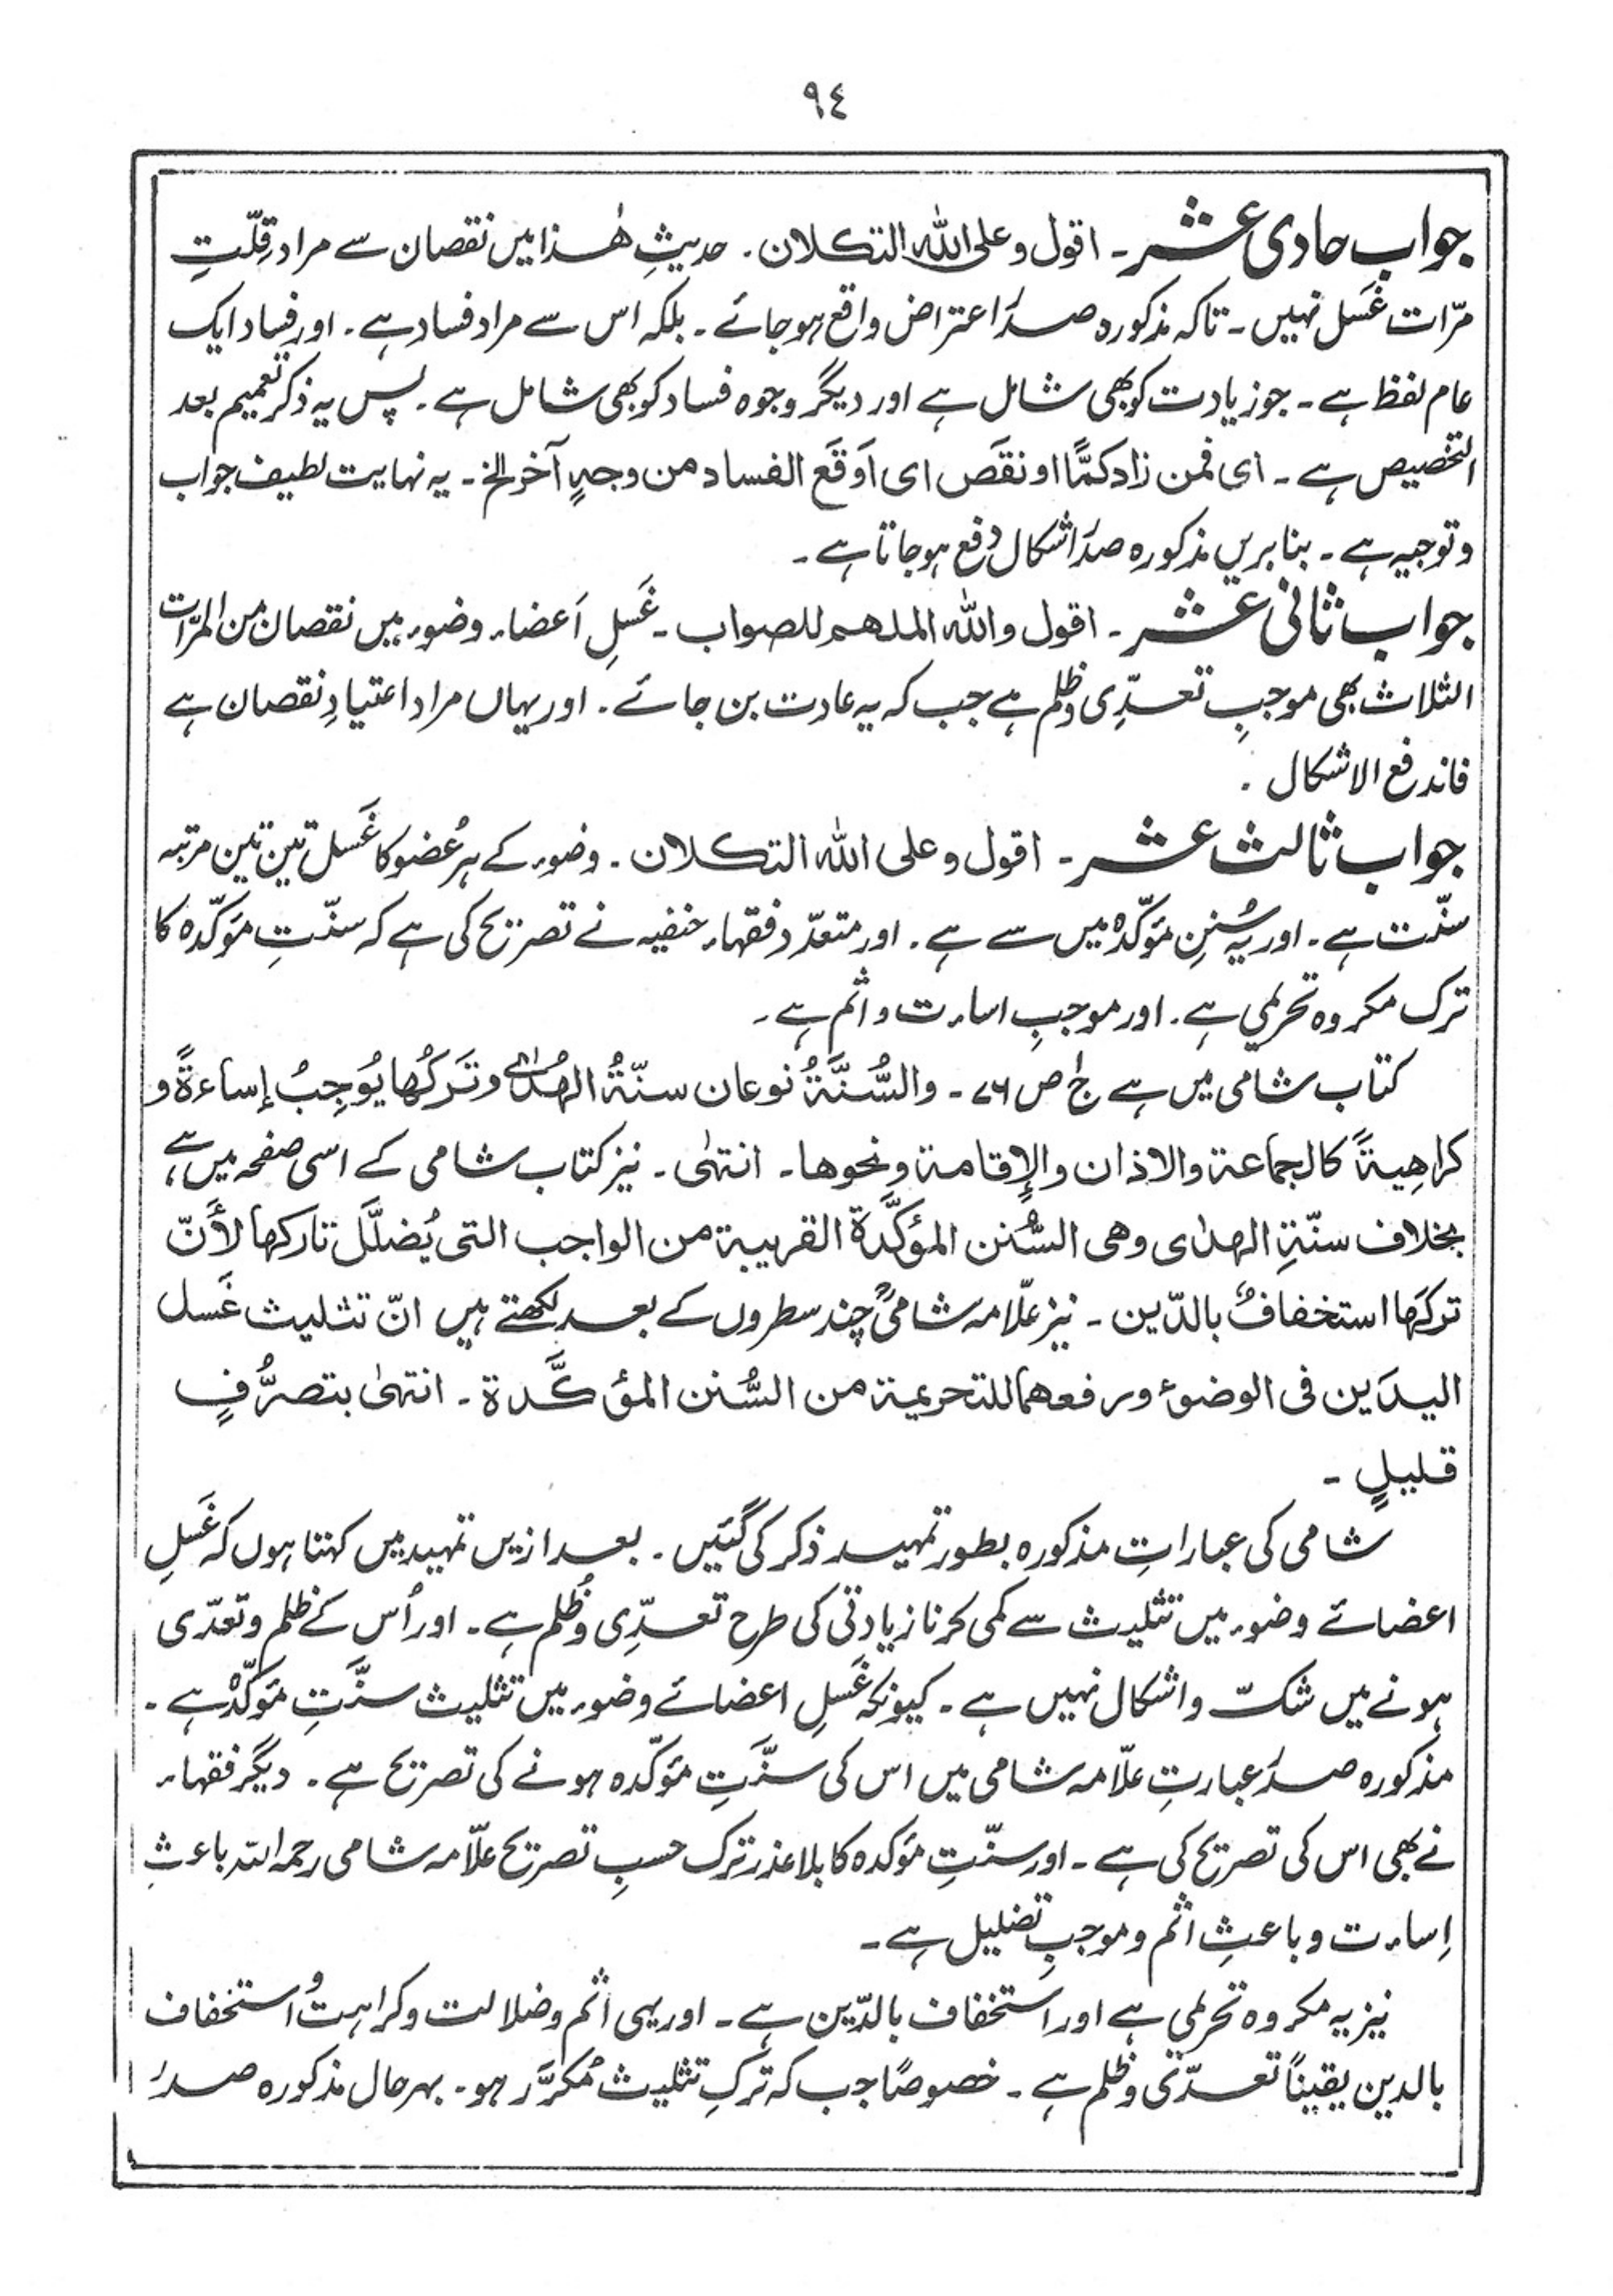 ٩٤
جواب حادی عشر ۔ اقول و علی اللّٰہ التکلان ۔ حدیثِ ھٰذا میں نقصان سے مراد قِلّتِ
مرّات غَسل نہیں ۔ تاکہ مذکورہ صدرُ اعتراض واقع ہوجائے ۔ بلکہ اس سے مراد فساد ہے ۔ اور فساد ایک
عام لفظ ہے ۔ جو زیادت کو بھی شامل ہے اور دیگر وجوہ فساد کو بھی شامل ہے ۔ پس یہ ذکر تعمیم بعد
التخصیص ہے ۔ ای فمن زاد کمًّا او نقَص ای اَوقَع الفساد من وجہٍ آخر الخ ۔ یہ نہایت لطیف جواب
و توجیہ ہے ۔ بنا بریں مذکورہ صدرُ اشکال دفع ہوجاتا ہے ۔
جواب ثانی عشر ۔ اقول و اللّٰہ الملھم للصواب ۔ غَسلِ اَعضاء وضوء میں نقصان من المرّات
الثلاث بھی موجبِ تعدّی و ظلم ہے جب کہ یہ عادت بن جائے ۔ اور یہاں مراد اعتیادِ نقصان ہے
فاندفع الاشکال ۔
جواب ثالث عشر ۔ اقول و علی اللّٰہ التکلان ۔ وضوء کے ہر عُضو کا غَسل تین تین مرتبہ
سنّت ہے ۔ اور یہ سُننِ مؤکّدہ میں سے ہے ۔ اور متعدّد فقہاء حنفیہ نے تصریح کی ہے کہ سنّتِ مؤکّدہ کا
ترک مکروہ تحریمی ہے ۔ اور موجبِ اساءت و اثم ہے ۔
کتاب شامی میں ہے ج۱ ص ۷۶ ۔ والسُّنَّةُ نوعان سنّةُ الھُدٰی وتَرکُھا یُوجِبُ إساءةً و
کراھیةً کالجماعة والاذان والإقامة ونحوھا ۔ انتہٰی ۔ نیز کتاب شامی کے اسی صفحہ میں ہے
بخلاف سنّةِ الھدٰی وھی السُّنن المؤکَّدة القریبة من الواجب التی یُضلَّل تارکھا لأنّ
ترکَھا استخفافٌ بالدّین ۔ نیز علّامہ شامیؒ چند سطروں کے بعد لکھتے ہیں انّ تثلیث غَسل
الیدَین فی الوضوء ورفعھما للتحریمة من السُّنن المؤکَّدة ۔ انتہٰی بتصرُّفٍ
قلیلٍ ۔
شامی کی عباراتِ مذکورہ بطور تمہید ذکر کی گئیں ۔ بعد ازیں تمہید میں کہتا ہوں کہ غَسلِ
اعضائے وضوء میں تثلیث سے کمی کرنا زیادتی کی طرح تعدّی و ظُلم ہے ۔ اور اُس کے ظلم و تعدّی
ہونے میں شکّ و اشکال نہیں ہے ۔ کیونکہ غَسلِ اعضائے وضوء میں تثلیث سنّتِ مؤکّدہ ہے ۔
مذکورہ صدرُ عبارتِ علّامہ شامی میں اس کی سنّتِ مؤکّدہ ہونے کی تصریح ہے ۔ دیگر فقہاء
نے بھی اس کی تصریح کی ہے ۔ اور سنّتِ مؤکدہ کا بلا عذر ترک حسبِ تصریح علّامہ شامی رحمہ اللہ باعثِ
اِساءت و باعثِ اثم و موجبِ تضلیل ہے ۔
نیز یہ مکروہ تحریمی ہے اور استخفاف بالدّین ہے ۔ اور یہی اثم و ضلالت و کراہت و استخفاف
بالدین یقیناً تعدّی و ظلم ہے ۔ خصوصًا جب کہ ترکِ تثلیث مُکرَّر ہو ۔ بہر حال مذکورہ صدرُ